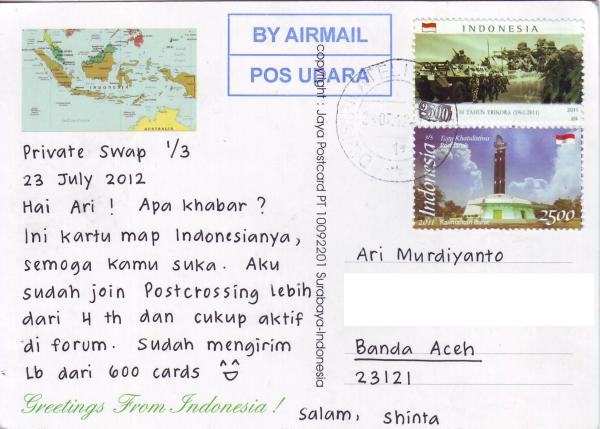 BY AIRMAIL
POS UDARA
INDONESIA
TAHUN TRIKORA (1961-2011)
2011
2500
Indonesia
3/5
Tugu Khatulistiwa
Pontianak
2011
Kalimantan Barat
2500
INDONESIA
AUSTRALIA
copyright : Jaya Postcard PT 10092201 Surabaya-Indonesia
Private Swap 1/3
23 July 2012
Hai Ari ! Apa khabar ?
Ini kartu map Indonesianya,
semoga kamu suka. Aku
sudah join Postcrossing lebih
dari 4 th dan cukup aktif
di forum. Sudah mengirim
Lb dari 600 cards
Greetings From Indonesia !
Salam, Shinta
Ari Murdiyanto
Banda Aceh
23121